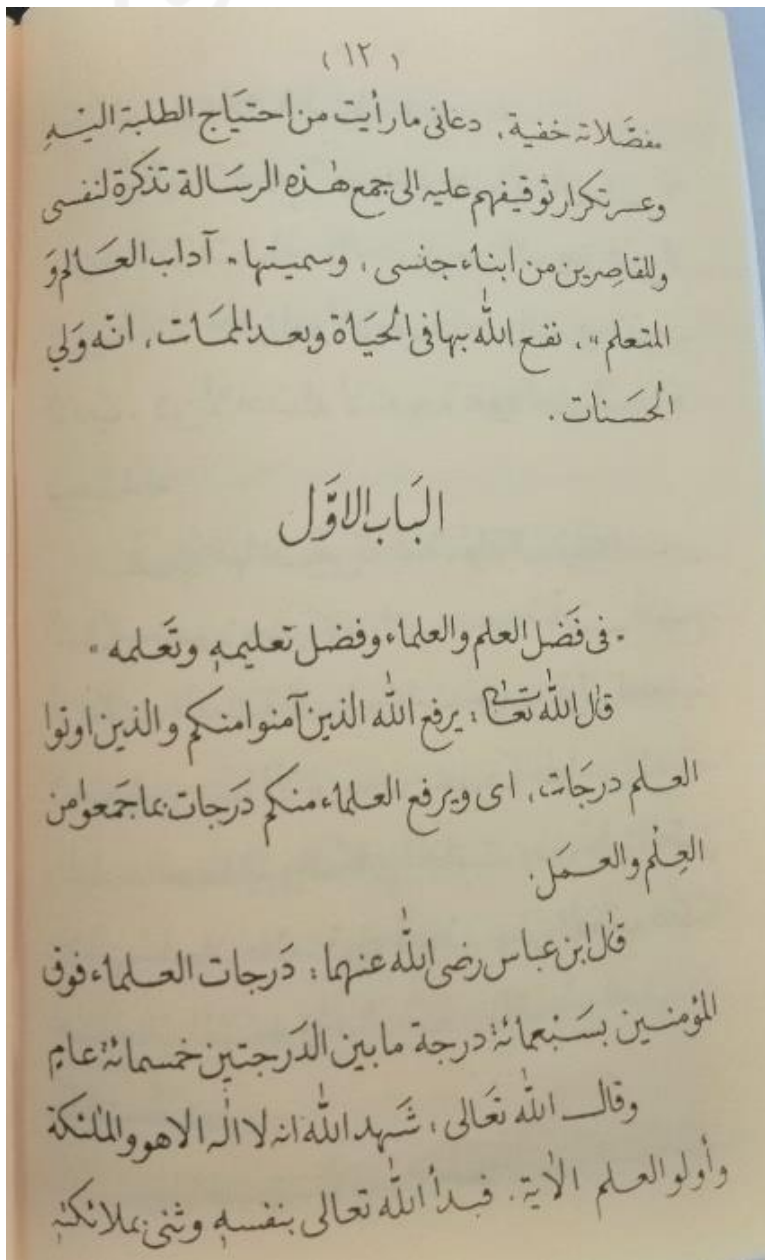 ( ١٢ )
مفصّلاته خفية، دعانى مارأيت من احتيَاج الطلبة اليه
وعسر تكرار توقيفهم عليه الى جمع هٰذه الرسَالة تذكرة لنفسى
وللقاصِرين من ابناء جنسى، وسميتها " آداب العَالم وَ
المتعلم "، نفع اللّٰه بها فى الحيَاة وبعد الممَات، انّه وَلي
الحسَنات.
البَاب الاوَّل
" فى فَضل العلم والعلماء وفضل تعليمهٖ وتَعلمه "
قال اللّٰه تعَالى: يرفع اللّٰه الذين آمنوا منكم والذين اوتوا
العلم درجَات، اى ويرفع العلماء منكم دَرَجات بما جَمعوا من
العِلْم والعمَل.
قال ابن عباس رضى اللّٰه عنهما: دَرجات العلماء فوق
المؤمنين بسَبْعمائة درجة مابين الدَرجتين خمسمائة عام
وقال اللّٰه تعَالى: شَهد اللّٰه انه لا الٰه الا هو والملٰئكة
وأولو العلم الاٰية. فبدأ اللّٰه تعالى بنفسهٖ وثنى بملائكتهٖ